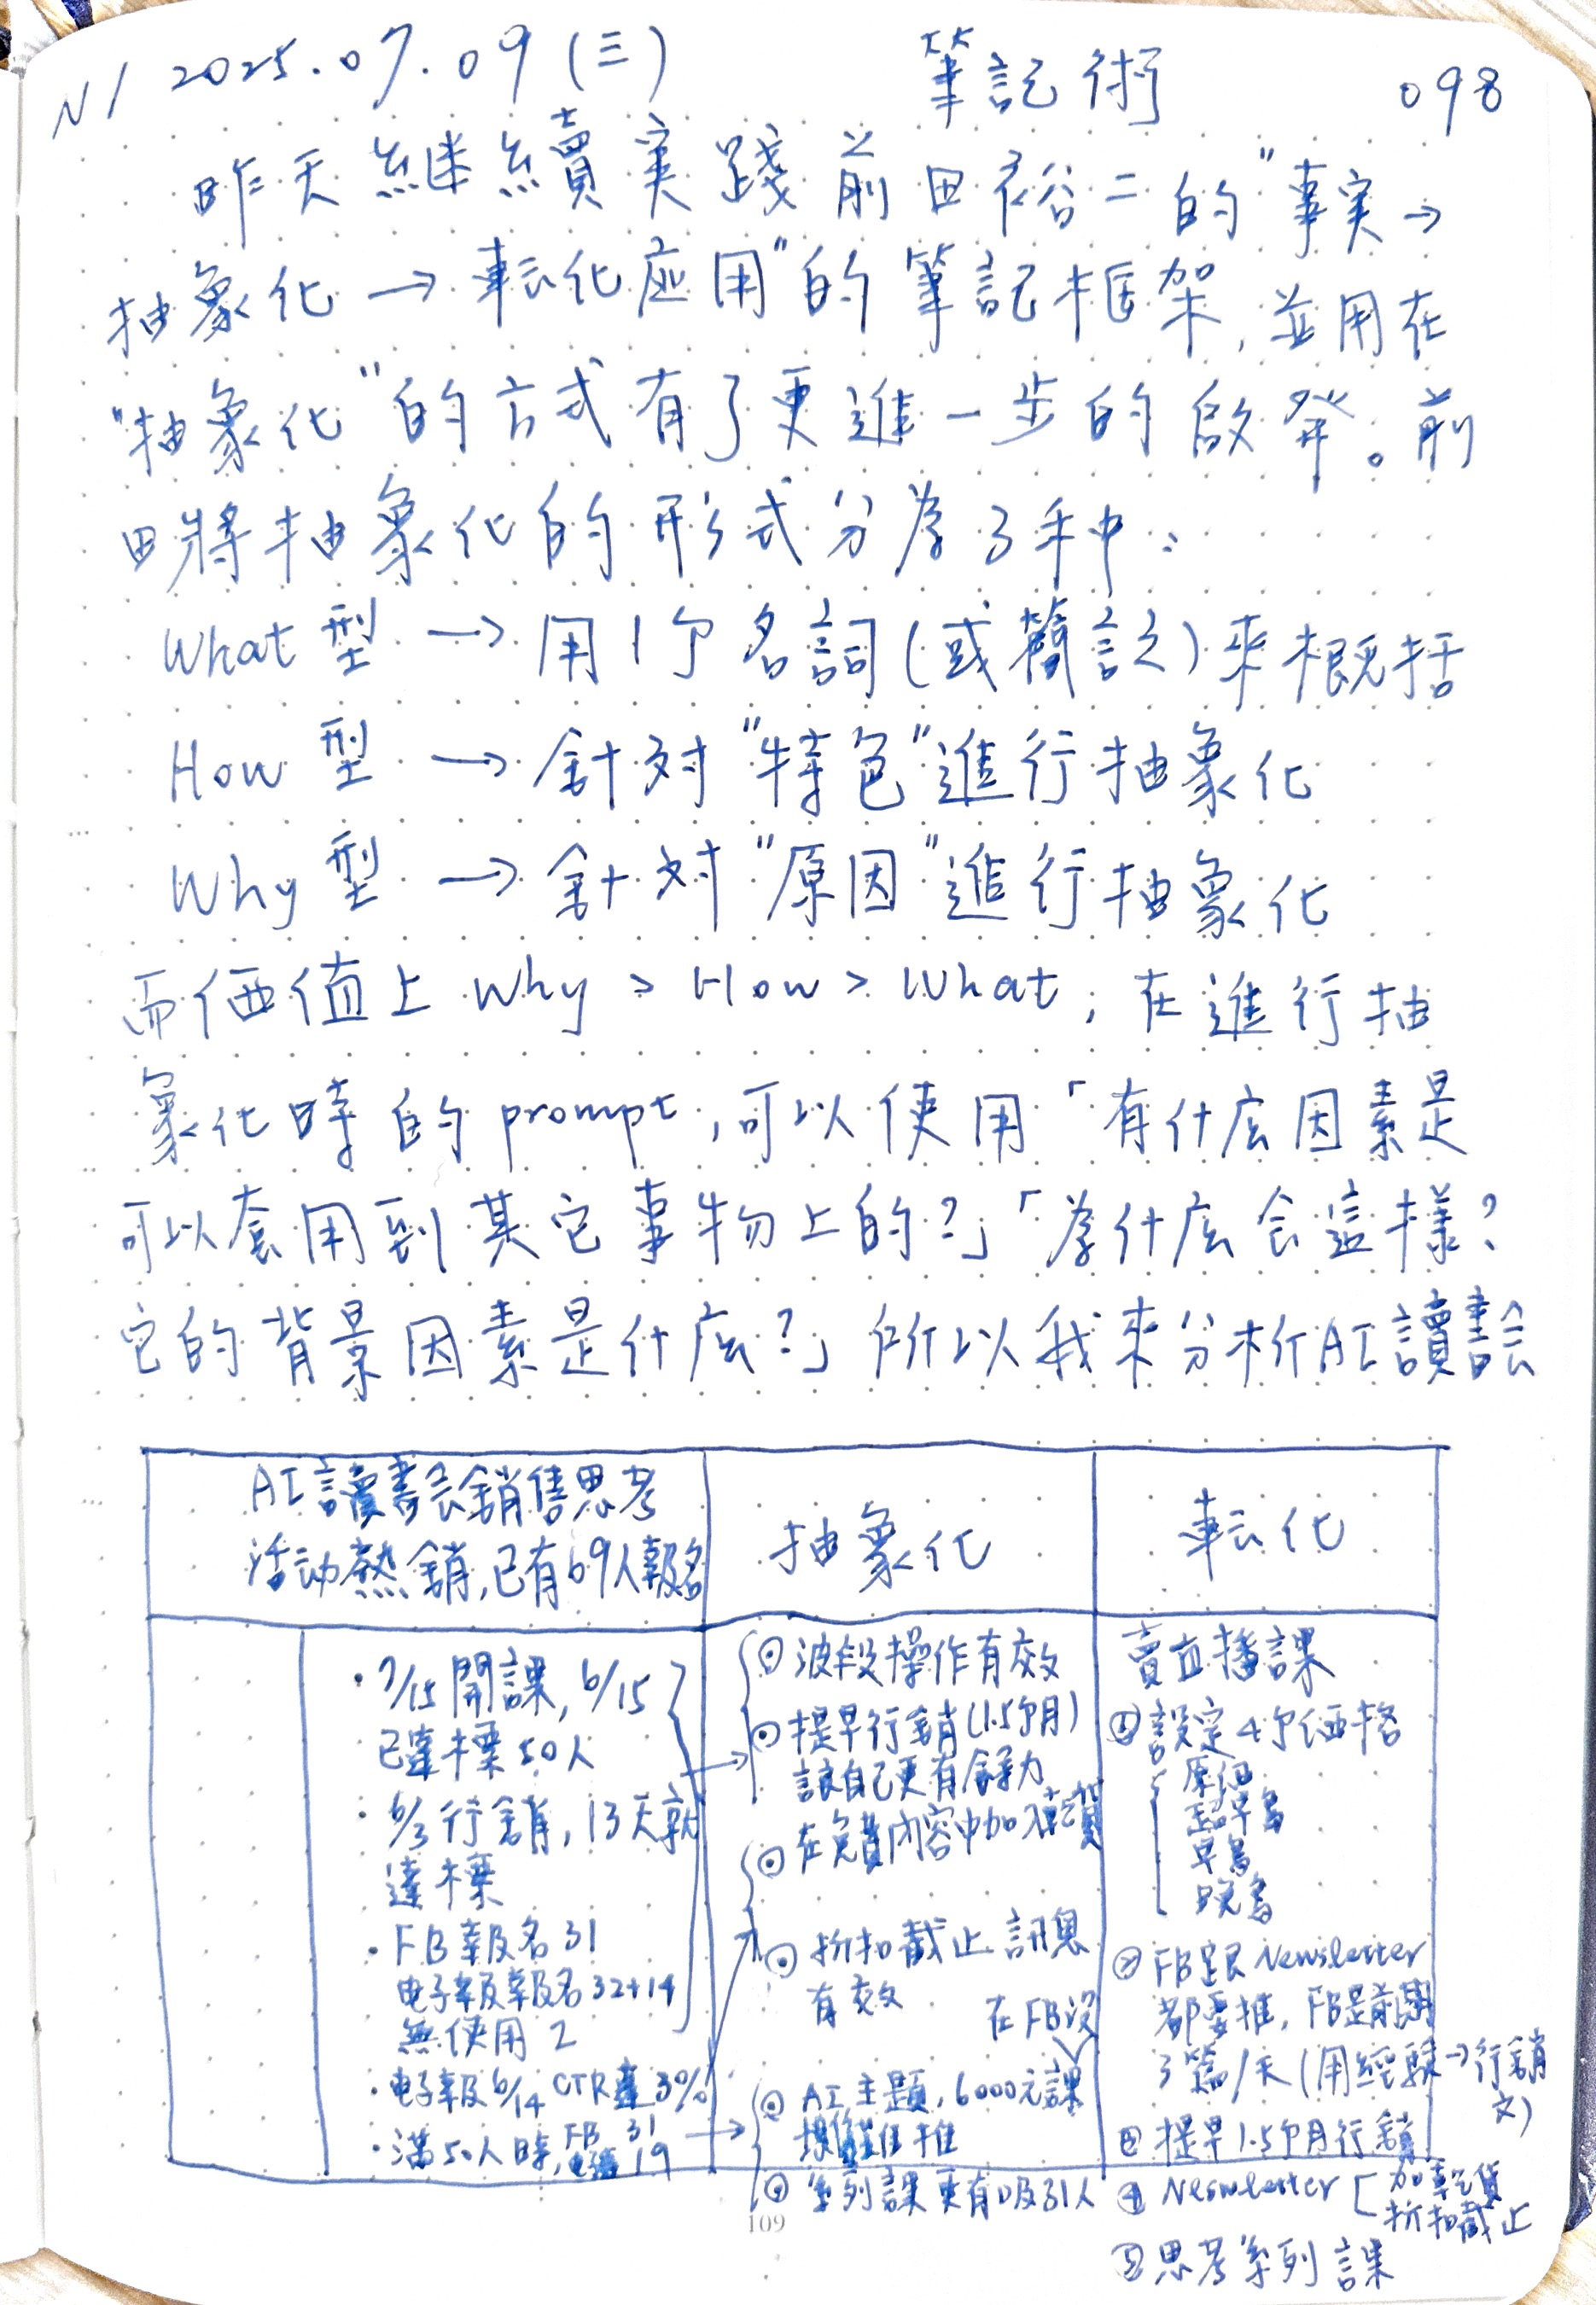 N1 2025.07.09 (三) 筆記術 098
昨天継續賣実踐前田裕二的"事実→
抽象化→転化应用"的筆記框架,並用在
"抽象化"的方式有了更進一步的啟発。前
田將抽象化的形式分為3种:
What型 → 用1个名詞(或簡訟)來概括
How型 → 針对"特色"進行抽象化
Why型 → 針对"原因"進行抽象化
而価值上 Why > How > What, 在進行抽
象化時的prompt,可以使用「有什庅因素是
可以套用到其它事物上的?」「為什庅会這樣?
它的背景因素是什庅?」所以我來分析AI讀書会
AI讀書会銷售思考
活动熱銷,已有69人報名
抽象化
転化
・7/15開課, 6/15
已達標50人
・6/3行銷, 13天就
達標
・FB報名31
电子報報名32+14
無使用 2
・电子報6/14 CTR達30%
・滿50人時, FB 31
电子報 19
⊙ 波段操作有效
⊙ 提早行銷(1.5个月)
讓自己更有餘力
⊙ 在免費內容中加入乾貨
⊙ 折扣截止訊息
有效
在FB沒
⊙ AI主題, 6000元課
難推
⊙ 系列課更有吸引人
賣直播課
① 設定4个価格
原価
超早鳥
早鳥
晚鳥
② FB跟Newsletter
都要推, FB是前期
3篇/天(用經驗→行銷
文)
③ 提早1.5个月行銷
④ Newsletter [ 加乾貨
折扣截止
⑤ 思考系列課
109